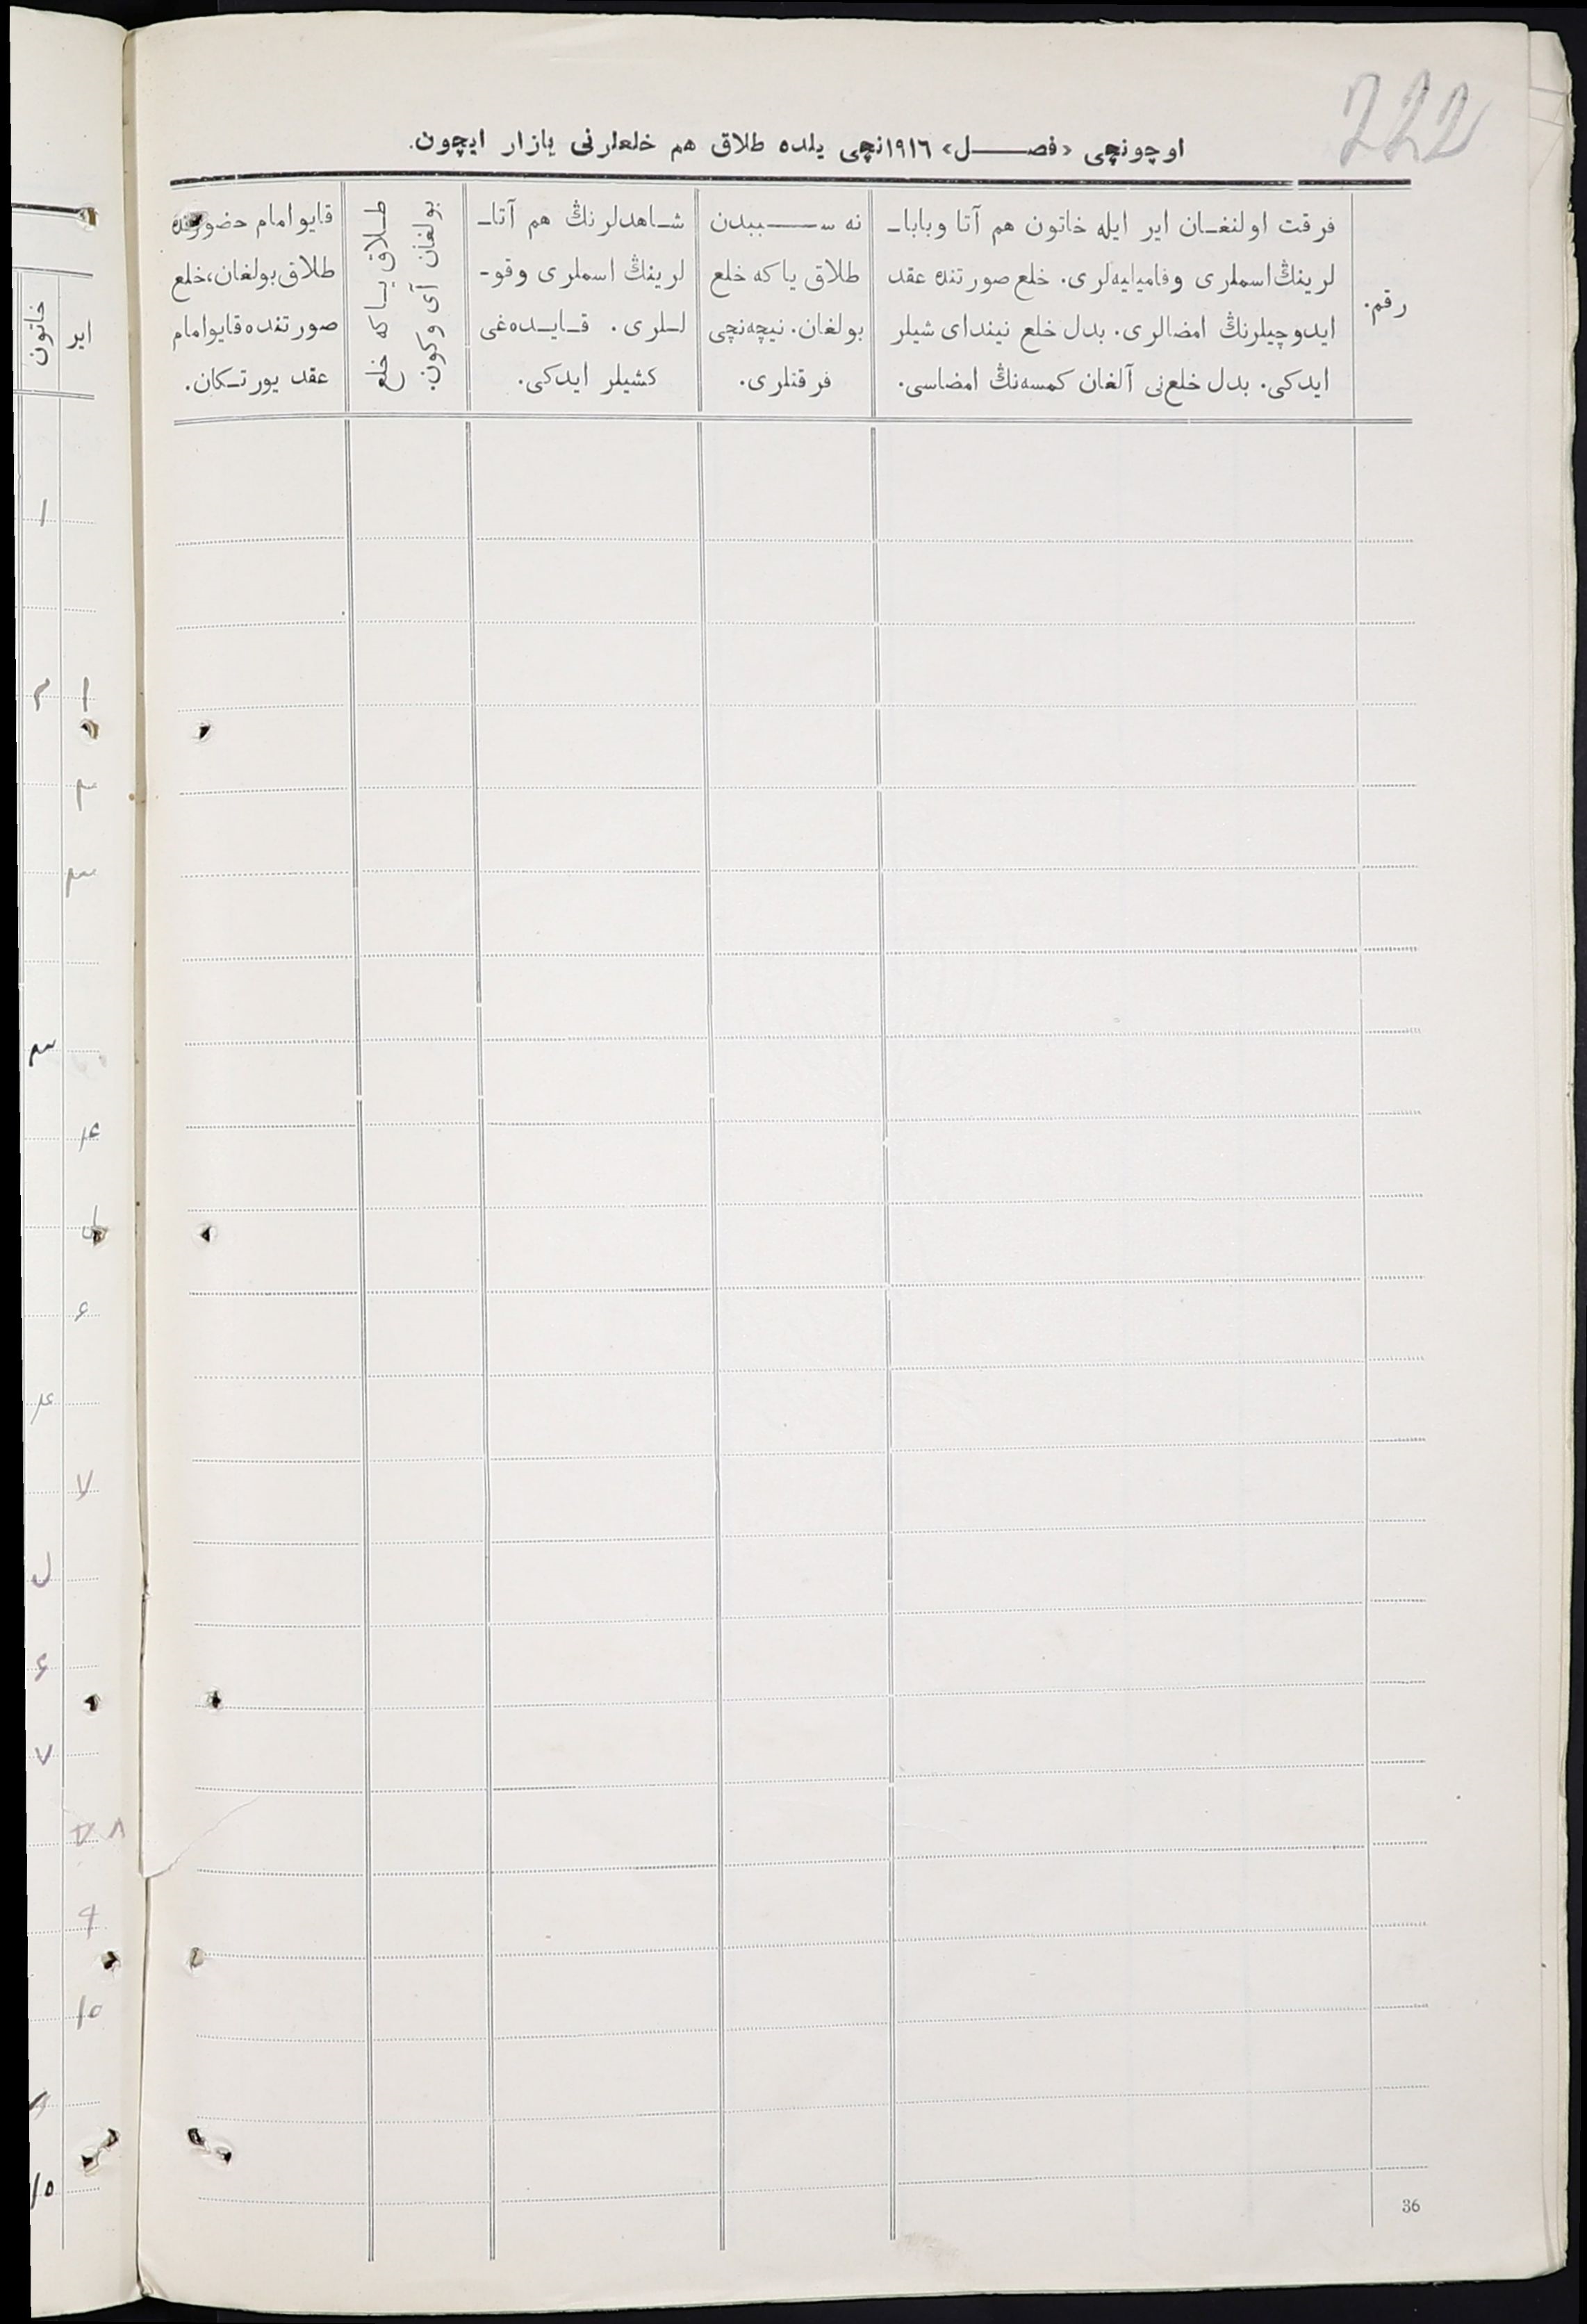 222
اوچونچی «فصـــل» ١٩١٦نچی یلده طلاق هم خلعلرنی یازار ایچون.
رقم.
فرقت اولنغـان ایر ایله خاتون هم آتا وبابا‍ـ
لرینڭ اسملری وفامیلیه‌لری. خلع صورتنده عقد
ایدوچیلرنڭ امضالری. بدل خلع نیندای شیلر
ایدکی. بدل خلع‌نی آلغان کمسه‌نڭ امضاسی.
نه ســـببدن
طلاق یا که خلع
بولغان. نیچه‌نچی
فرقتلری.
شـاهدلرنڭ هم آتا‍ـ
لرینڭ اسملری وفو‍ـ
لـلری. قـایـده‌غی
کشیلر ایدکی.
طـلاق یـا که خلع
بولغان آی وکون.
قایو امام حضورنده
طلاق بولغان، خلع
صورتنده قایو امام
عقد یورتـکان.
ایر
خاتون
١
١ ٢
٢
٣
٣
۴
۶
۴
٧
۶
٧
٨
٩
١٠
١٠
36